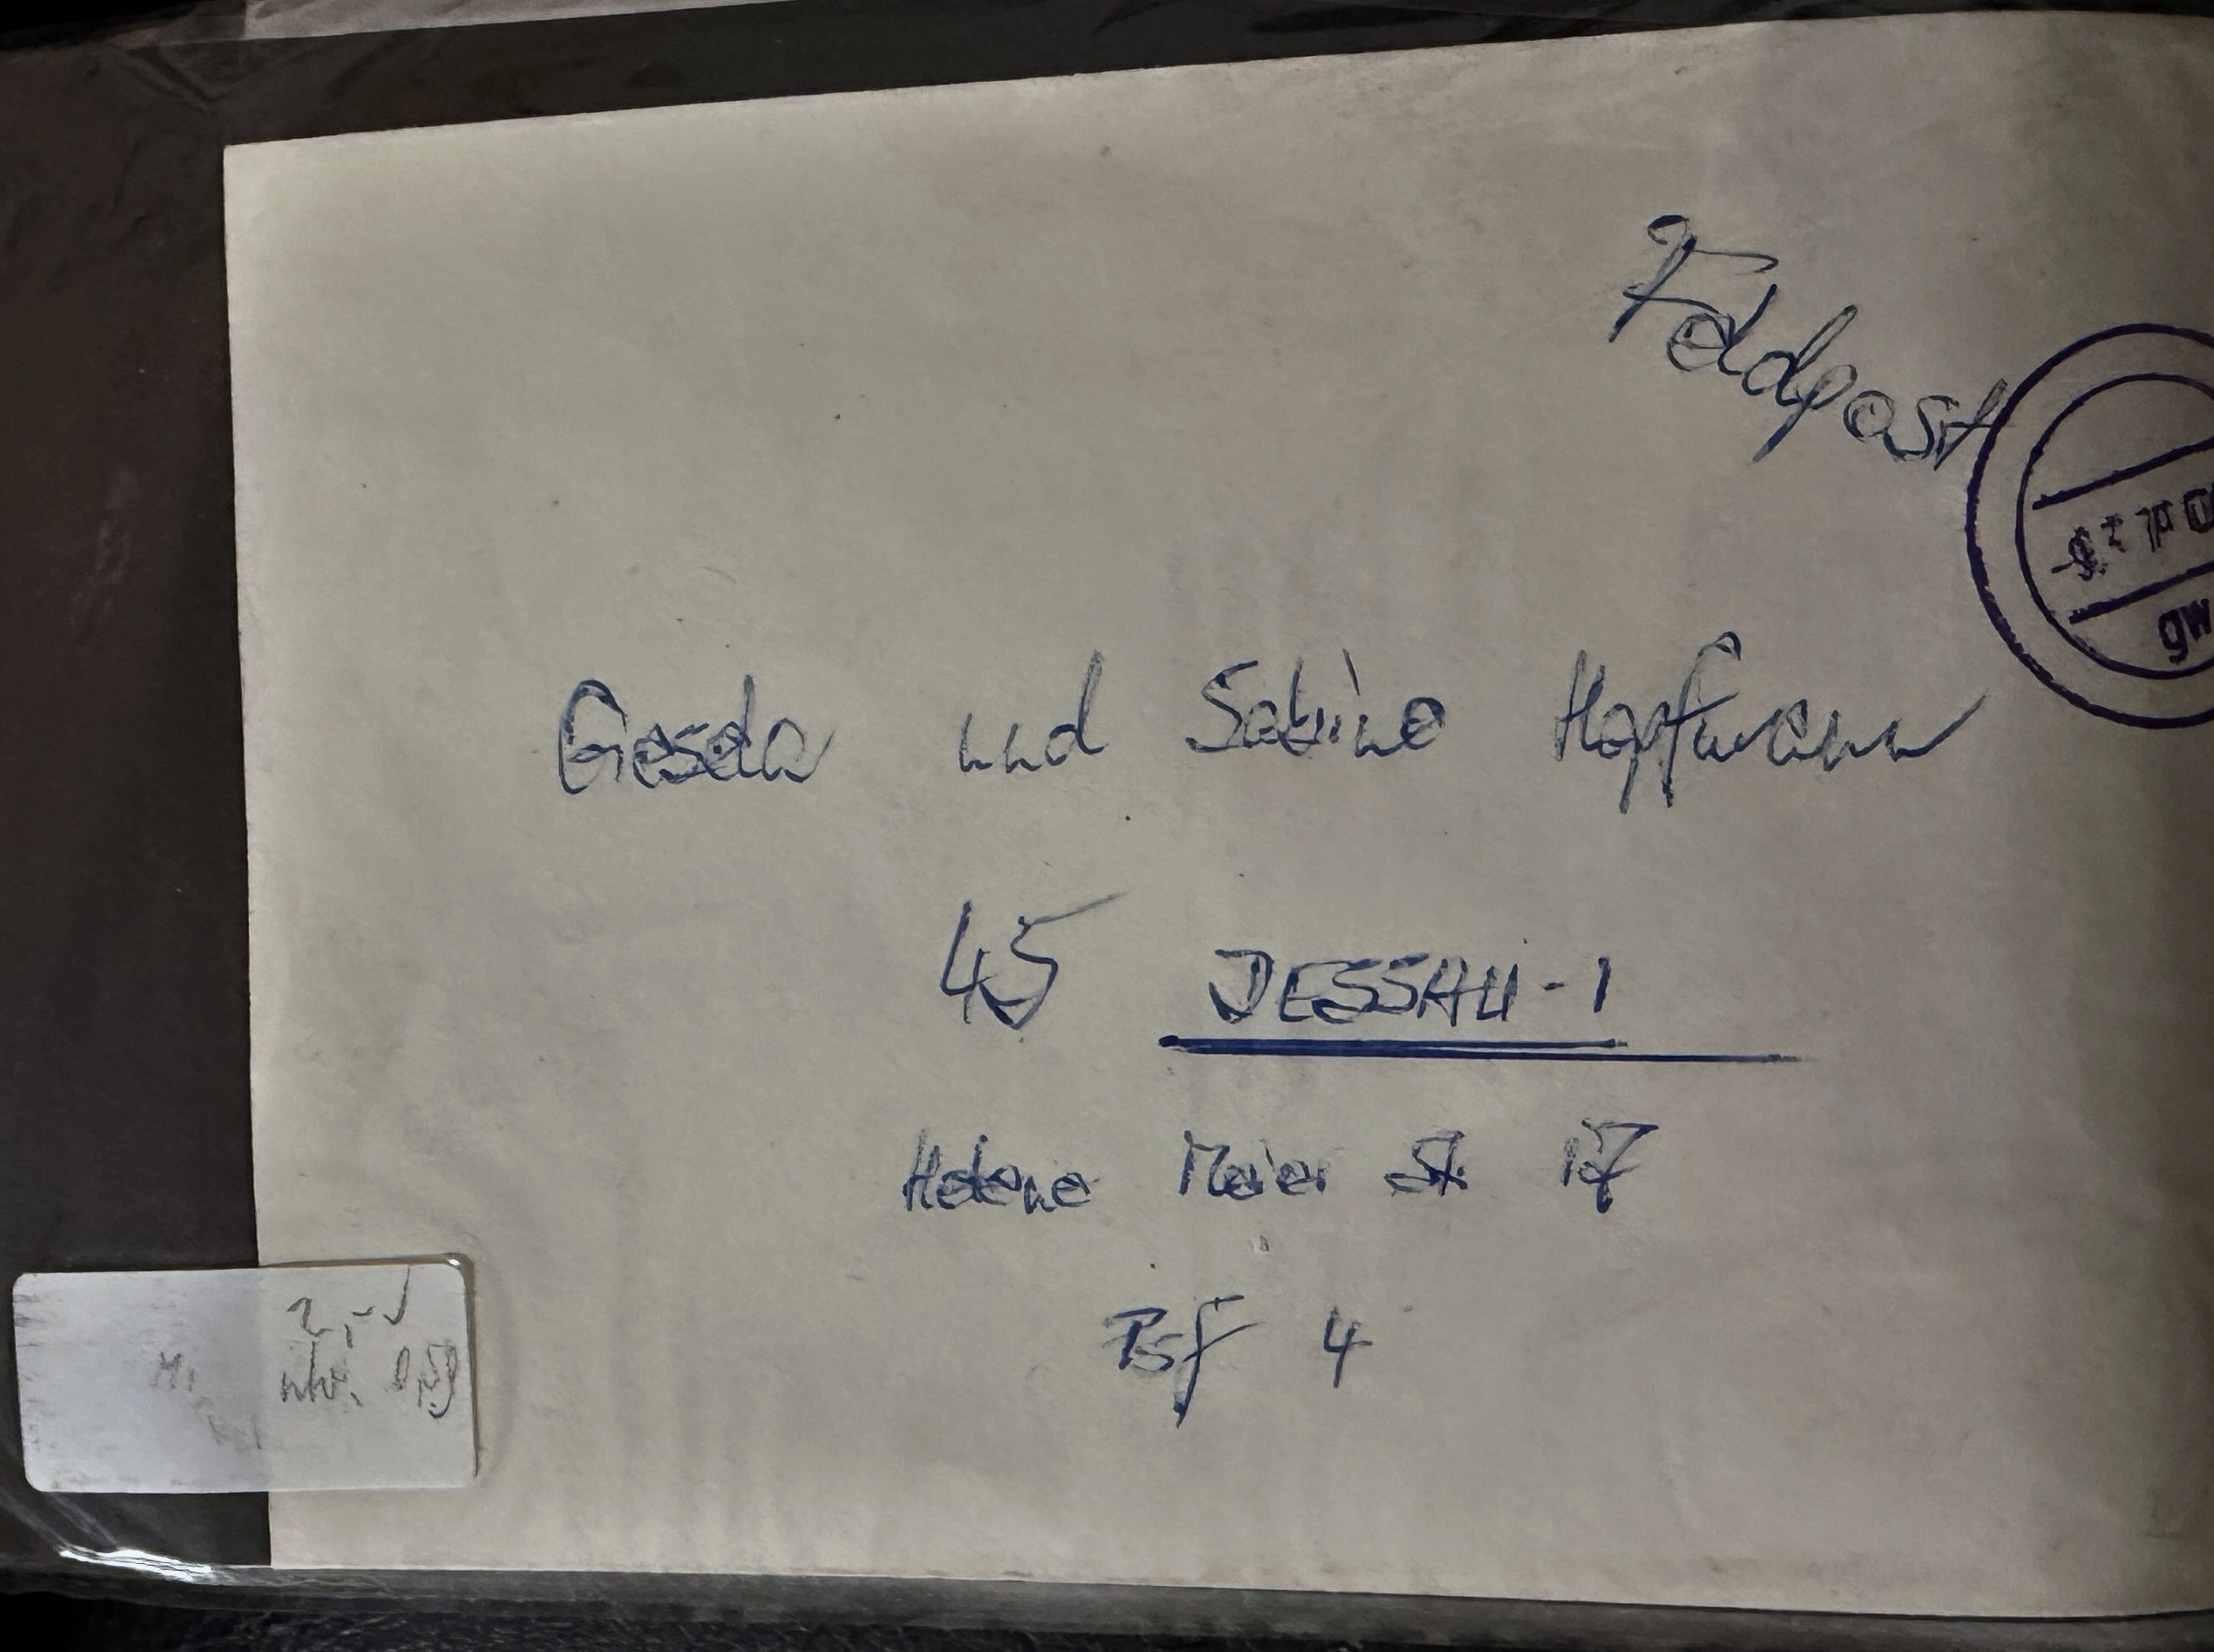 Feldpost
gw
Gesela und Sabine Hopfmann
45 DESSAU-1
Helene Meier Str 17
Psf 4
2,-